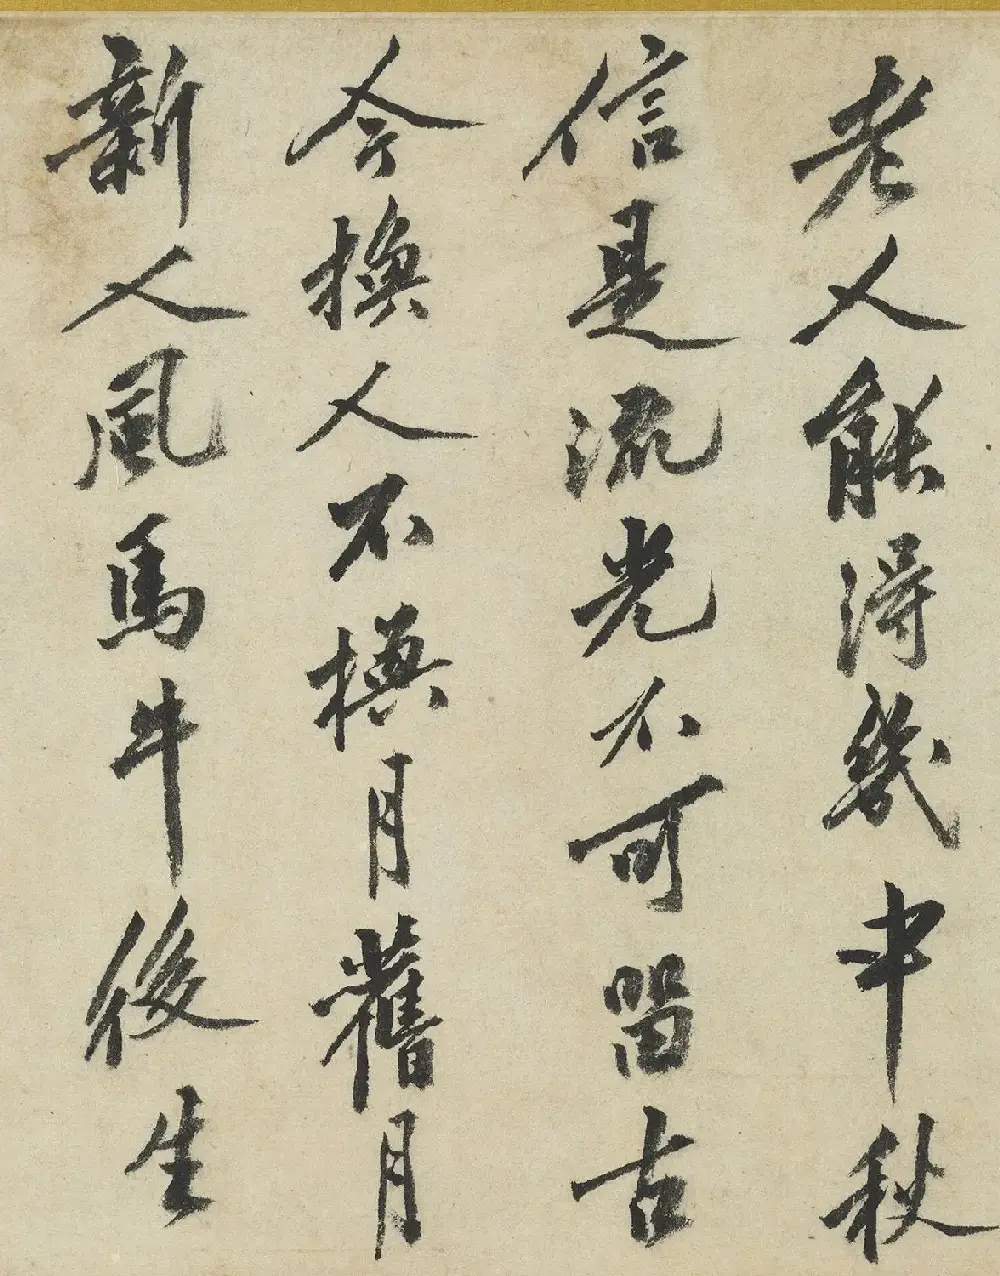 老人能得幾中秋
信是流光不可留古
今換人不換月舊月
新人風馬牛後生